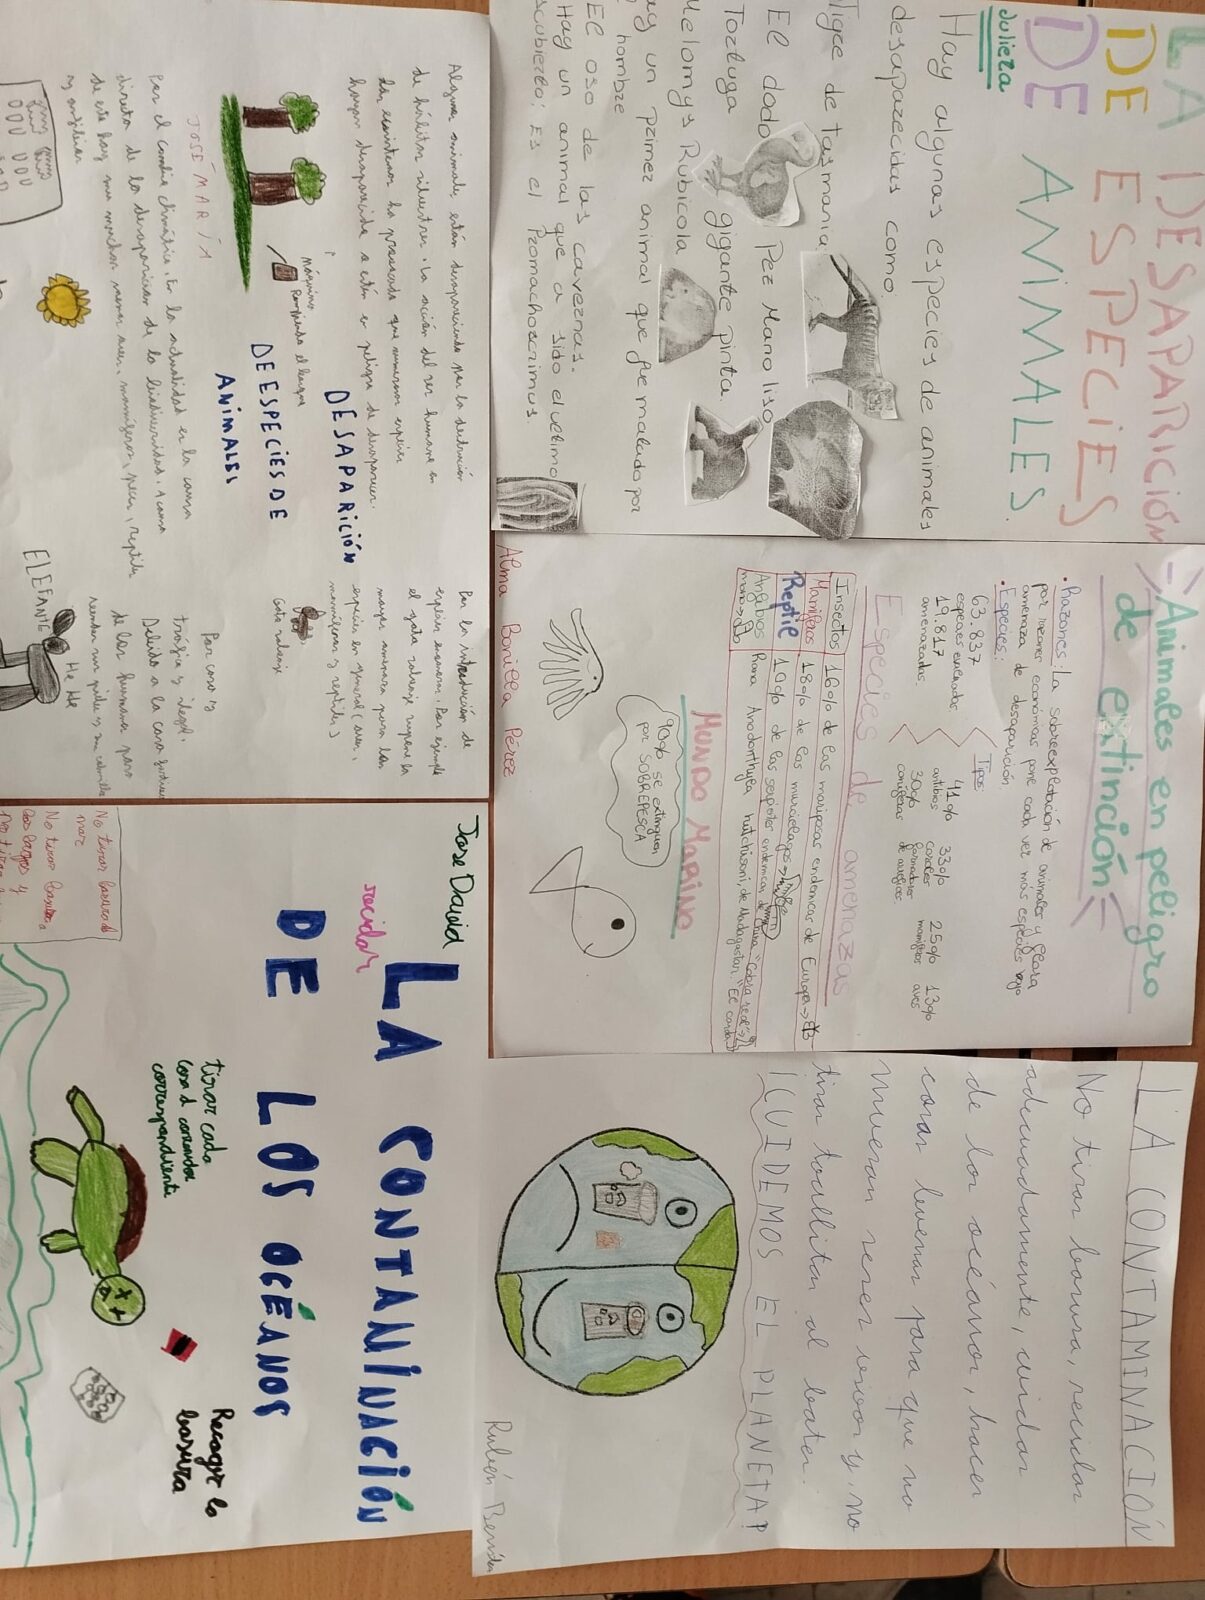 LA DESAPARICIÓN
DE ESPECIES
DE ANIMALES.
Julieta
Hay algunas especies de animales
desaparecidas como.
Tigre de tasmania
El dodo Pez Mano liso
Tortuga gigante pinta.
Melomys Rubicola
ay un primer animal que fue matado por
hombre
El oso de las cavernas.
Hay un animal que a sido el ultimo
scubierto: Es el Promachocrinus.
Animales en peligro
de extinción
• Razones: La sobreexplotación de animales y flora
por razones económicas pone cada vez más especies bajo
amenaza de desaparición
• Especies:
63.837
especies
19.817
amenazados.
Tipos
41% 33% 25% 13%
anfibios corales mamíferos aves
30% formadores
coníferas de arrecifes
Especies de amenazas
Insectos 16% de las mariposas endemicas de Europa
Mamiferos 18% de los murcielagos
Reptil 10% de las serpientes endemicas de China "Cobra real"
Anfibios Rana
MUNDO MARINO
90% se extinguen
por SOBREPESCA
Alma Bonilla Pérez
LA CONTAMINACIÓN
No tirar basura, reciclar
adecuadamente, cuidar
de los océanos, hacer
cosas buenas para que no
mueran seres vivos y no
tirar toallitas al bater.
¡CUIDEMOS EL PLANETA!
Rubén
Algunos animales están desapareciendo por la destrución
de hábitas silvestres. La acción del ser humano en
los ecosistemas ha provocado que numerosas especies
hayan desaparecido o estén en peligro de desaparecer.
DESAPARICIÓN
DE ESPECIES DE
ANIMALES
máquina
rompiendo el bosque
JOSÉ MARÍA
Por el cambio climático. En la actualidad es la causa
directa de la desaparición de la biodiversidad. A causa
de esto hay muchas menos aves, mamíferos, peces, reptiles
y anfibios
Por la introducción de
especies invasoras. Por ejemplo
el gato salvaje supone la
mayor amenaza para las
especies en general (aves,
mamíferos y reptiles)
Gato salvaje
Por caza y
tráfico ilegal.
Debido a la caza furtiva
de los humanos para
vender sus pieles y su colmillo
ELEFANTE
He He
Jose David
LA CONTANÍNACIÓN
DE LOS OCÉANOS
reciclar
tirar cada
cosa al contenedor
correspondiente
Recoger la
basura
No tirar basura al
mar
No tirar basura a
los lagos y